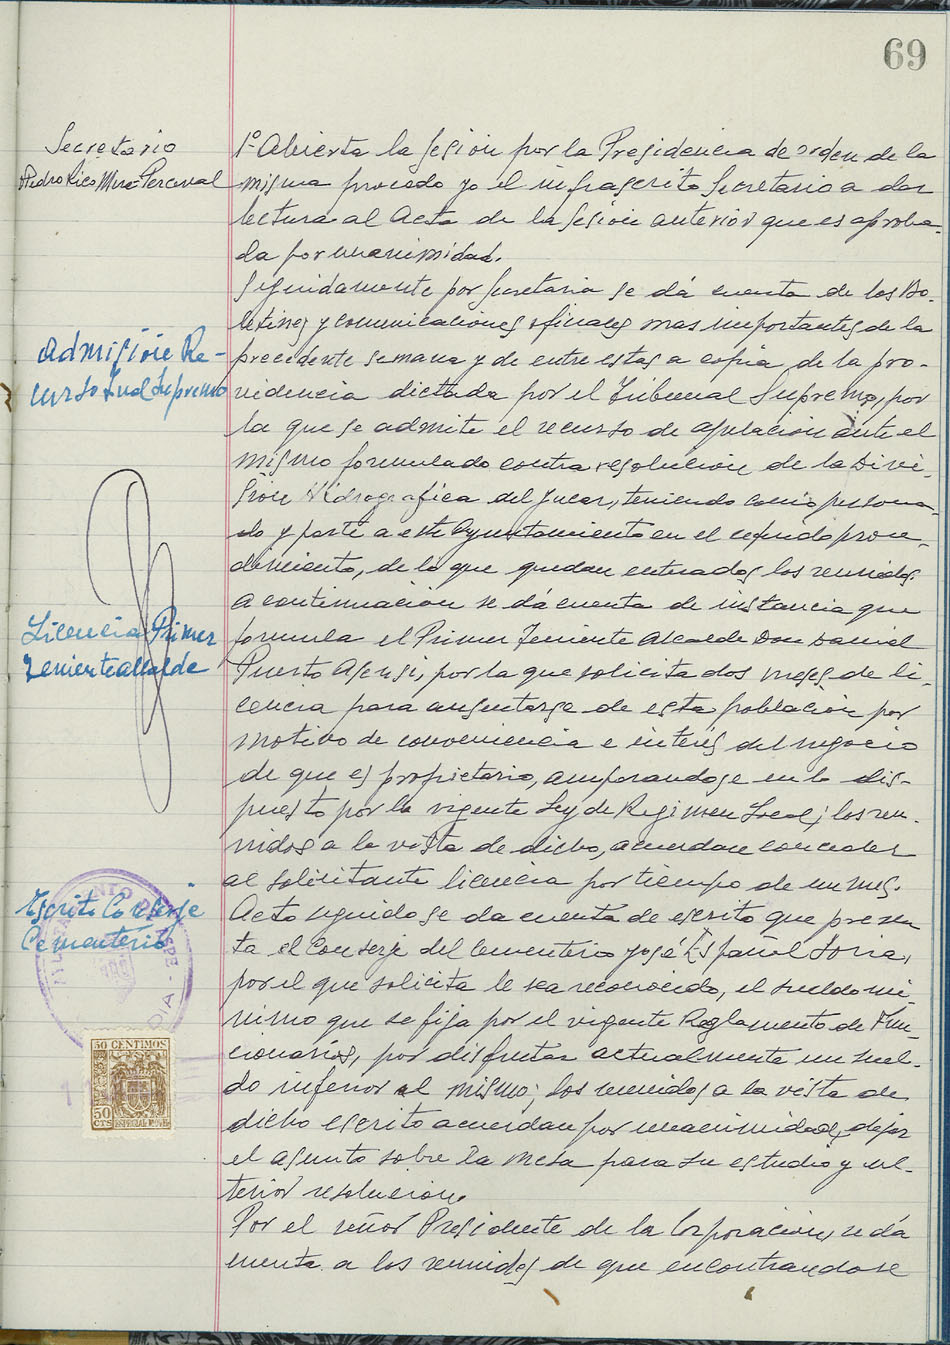 69
Secretario
Pedro Rico Mira-Perceval
1º Abierta la sesión por la Presidencia de orden de la
misma procedo yo el infrascrito Secretario a dar
lectura al Acta de la sesión anterior que es aproba-
da por unanimidad.
Seguidamente por Secretaria se dá cuenta de los Bo-
letines y comunicaciones oficiales mas importantes de la
Admisión Re-
precedente semana y de entre estas a copia de la pro-
curso Tnal Supremo
videncia dictada por el Tribunal Supremo, por
la que se admite el recurso de apelación ante el
mismo formulado contra resolución de la Divi-
sión Hidrografica del Jucar, teniendo como persona-
do y parte a este Ayuntamiento en el referido proce-
dimiento, de lo que quedan enterados los reunidos.
A continuación se dá cuenta de instancia que
Licencia Primer
formula el Primer Teniente Alcalde Don Daniel
Teniente alcalde
Puerto Asensi, por la que solicita dos meses de li-
cencia para ausentarse de esta población por
motivo de conveniencia e interés del negocio
de que es propietario, amparandose en lo dis-
puesto por la vigente Ley de Regimen Local; los reu-
nidos a la vista de dicho, acuerdan conceder
al solicitante licencia por tiempo de un mes.
Escrito Conserje
Acto seguido se da cuenta de escrito que presen
Cementerio
ta el Conserje del Cementerio José Español Soria,
por el que solicita le sea reconocido, el sueldo mi-
nimo que se fija por el vigente Reglamento de Fun-
cionarios, por disfrutar actualmente un suel-
do inferior al mismo; los reunidos a la vista de
dicho escrito acuerdan por unanimidad, dejar
el asunto sobre la mesa para su estudio y ul-
terior resolucion.
Por el señor Presidente de la Corporacion, se dá
cuenta a los reunidos de que encontrandose
AYUNTAMIENTO DE ASPE
50 CENTIMOS
50
CTS
ESPECIAL MOVIL